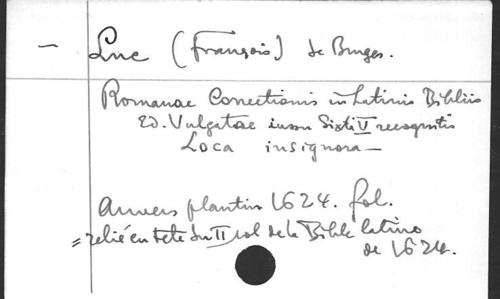 — Luc (François) de Bruges.
Romanae Correctionis in Latinis Bibliis
Ed. Vulgatae iussu Sixti V recognitis
Loca insigniora —
Anvers plantin 1624. fol.
= relié en tete du II vol de la Bible latine
de 1624.